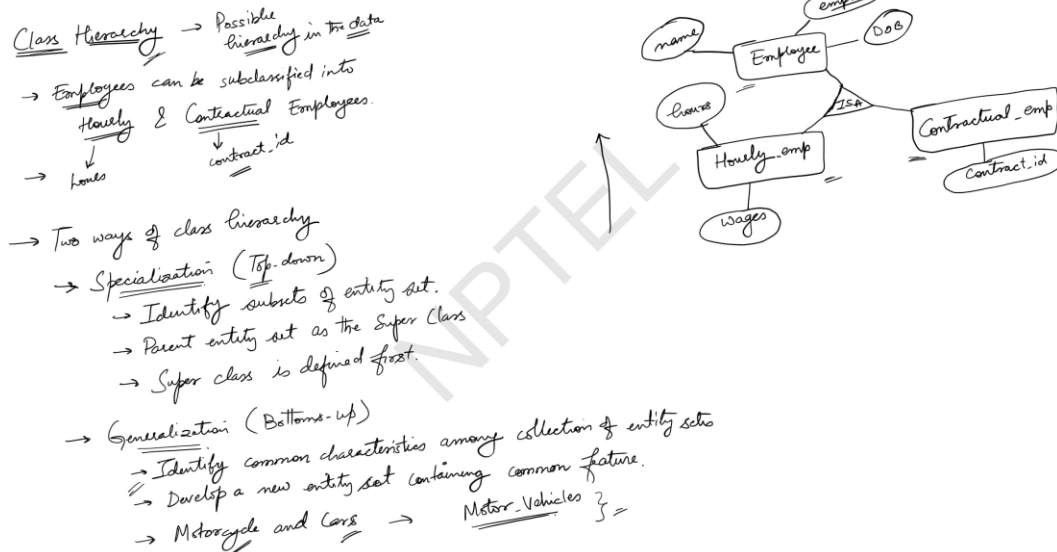 Class Hierarchy → Possible
hierarchy in the data
→ Employees can be subclassified into
Hourly & Contractual Employees.
→ hours
contract_id
→ Two ways of class hierarchy
→ Specialization (Top-down)
→ Identify subsets of entity set.
→ Parent entity set as the Super Class
→ Super class is defined first.
→ Generalization (Bottoms-up)
→ Identify common characteristics among collection of entity sets
→ Develop a new entity set containing common feature.
→ Motorcycle and Cars → Motor_Vehicles }
name
Employee
DOB
hours
ISA
Hourly_emp
Contractual_emp
wages
contract_id
NPTEL